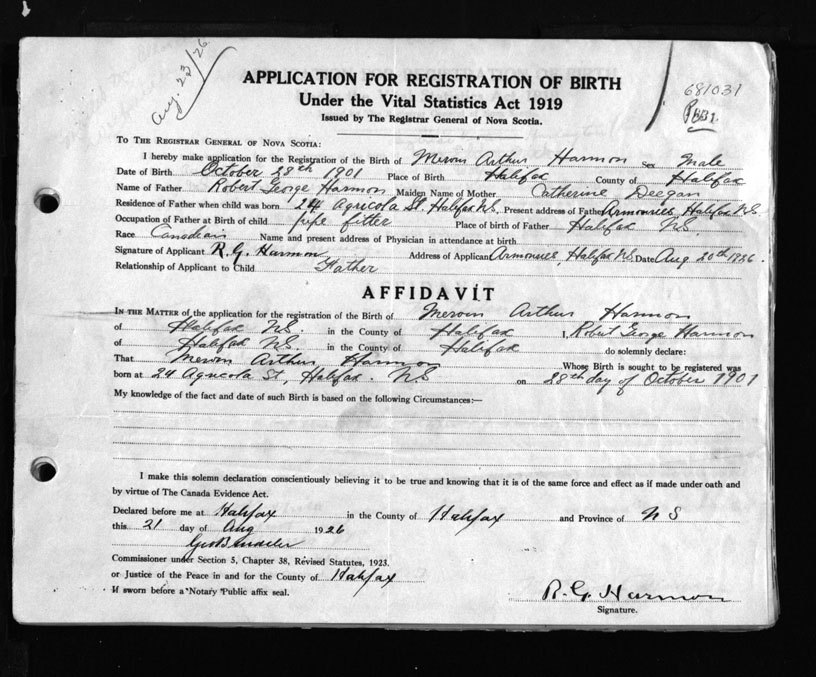 Aug. 23/26
681031
APPLICATION FOR REGISTRATION OF BIRTH
Under the Vital Statistics Act 1919
Issued by The Registrar General of Nova Scotia.
TO THE REGISTRAR GENERAL OF NOVA SCOTIA:
I hereby make application for the Registration of the Birth of Mervin Arthur Harmon Sex male
Date of Birth October 28th 1901 Place of Birth Halifax County of Halifax
Name of Father Robert George Harmon Maiden Name of Mother Catherine Deegan
Residence of Father when child was born 24 Agricola St, Halifax NS. Present address of Father Armouries, Halifax NS.
Occupation of Father at Birth of child pipe fitter Place of birth of Father Halifax NS.
Race Canadian Name and present address of Physician in attendance at birth
Signature of Applicant R. G. Harmon Address of Applicant Armouries, Halifax NS. Date Aug 20th 1926.
Relationship of Applicant to Child Father
AFFIDAVIT
IN THE MATTER of the application for the registration of the Birth of Mervin Arthur Harmon
of Halifax NS. in the County of Halifax I, Robert George Harmon
of Halifax NS. in the County of Halifax do solemnly declare:
That Mervin Arthur Harmon Whose Birth is sought to be registered was
born at 24 Agricola St, Halifax. NS on 28th day of October 1901
My knowledge of the fact and date of such Birth is based on the following Circumstances:—
I make this solemn declaration conscientiously believing it to be true and knowing that it is of the same force and effect as if made under oath and
by virtue of The Canada Evidence Act.
Declared before me at Halifax in the County of Halifax and Province of N S
this 21 day of Aug 1926
Commissioner under Section 5, Chapter 38, Revised Statutes, 1923.
or Justice of the Peace in and for the County of Halifax
If sworn before a Notary Public affix seal.
R. G. Harmon
Signature.